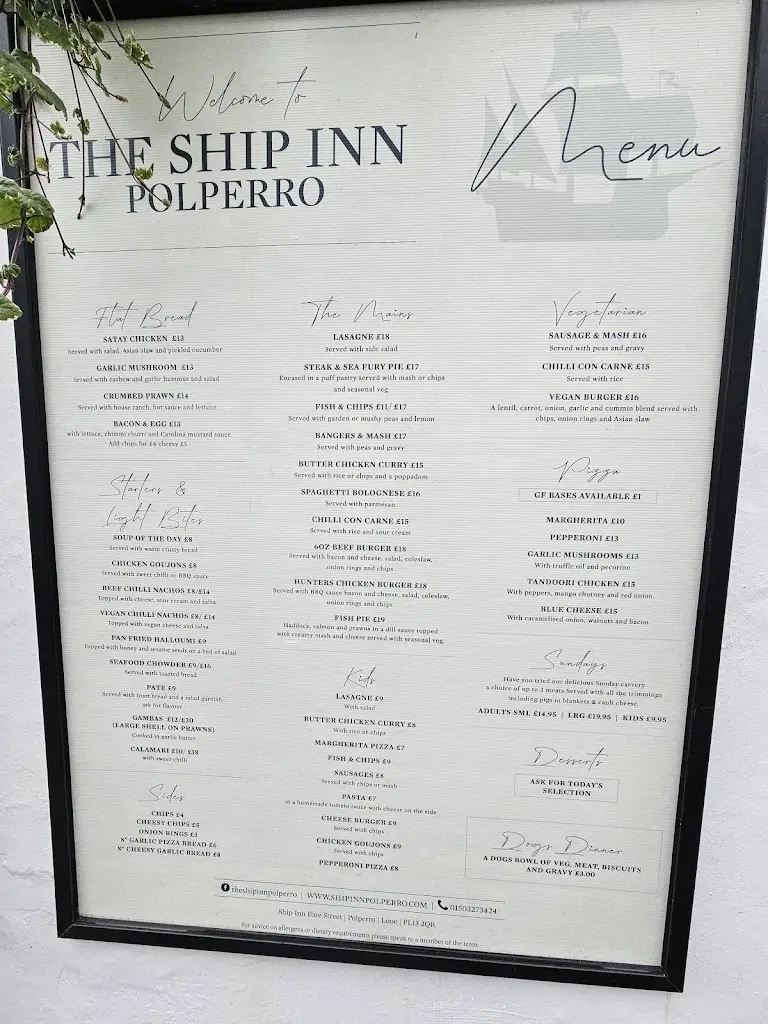 Welcome to
THE SHIP INN
POLPERRO
Menu
Flat Bread
SATAY CHICKEN £13
Served with salad, Asian slaw and pickled cucumber
GARLIC MUSHROOM £13
Served with cashew and garlic hummus and salad
CRUMBED PRAWN £14
Served with house ranch, hot sauce and lettuce
BACON & EGG £13
with lettuce, chimmi churri and Carolina mustard sauce
Add chips for £4 cheesy £5
Starters &
Light Bites
SOUP OF THE DAY £8
Served with warm crusty bread
CHICKEN GOUJONS £8
Served with sweet chilli or BBQ sauce
BEEF CHILLI NACHOS £8/£14
Topped with cheese, sour cream and salsa
VEGAN CHILLI NACHOS £8/ £14
Topped with vegan cheese and salsa
PAN FRIED HALLOUMI £9
Topped with honey and sesame seeds on a bed of salad
SEAFOOD CHOWDER £9/£16
Served with toasted bread
PATE £9
Served with toast bread and a salad garnish
ask for flavour
GAMBAS £12/£20
(LARGE SHELL ON PRAWNS)
Cooked in garlic butter
CALAMARI £10/ £18
with sweet chilli
Sides
CHIPS £4
CHEESY CHIPS £5
ONION RINGS £3
8" GARLIC PIZZA BREAD £6
8" CHEESY GARLIC BREAD £8
The Mains
LASAGNE £18
Served with side salad
STEAK & SEA FURY PIE £17
Encased in a puff pastry served with mash or chips
and seasonal veg
FISH & CHIPS £11/ £17
Served with garden or mushy peas and lemon
BANGERS & MASH £17
Served with peas and gravy
BUTTER CHICKEN CURRY £15
Served with rice or chips and a poppadom
SPAGHETTI BOLOGNESE £16
Served with parmesan
CHILLI CON CARNE £15
Served with rice and sour cream
6OZ BEEF BURGER £18
Served with bacon and cheese, salad, coleslaw,
onion rings and chips
HUNTERS CHICKEN BURGER £18
Served with BBQ sauce bacon and cheese, salad, coleslaw,
onion rings and chips.
FISH PIE £19
Haddock, salmon and prawns in a dill sauce topped
with creamy mash and cheese served with seasonal veg.
Kids
LASAGNE £9
With salad
BUTTER CHICKEN CURRY £8
With rice or chips
MARGHERITA PIZZA £7
FISH & CHIPS £9
SAUSAGES £8
Served with chips or mash
PASTA £7
in a homemade tomato sauce with cheese on the side
CHEESE BURGER £9
Served with chips
CHICKEN GOUJONS £9
Served with chips
PEPPERONI PIZZA £8
Vegetarian
SAUSAGE & MASH £16
Served with peas and gravy
CHILLI CON CARNE £15
Served with rice
VEGAN BURGER £16
A lentil, carrot, onion, garlic and cummin blend served with
chips, onion rings and Asian slaw
Pizza
GF BASES AVAILABLE £1
MARGHERITA £10
PEPPERONI £13
GARLIC MUSHROOMS £13
With truffle oil and pecorino
TANDOORI CHICKEN £15
With peppers, mango chutney and red onion.
BLUE CHEESE £15
With caramelised onion, walnuts and bacon
Sundays
Have you tried our delicious Sunday carvery
a choice of up to 3 meats Served with all the trimmings
including pigs in blankets & cauli cheese
ADULTS SML £14.95 | LRG £19.95 | KIDS £9.95
Desserts
ASK FOR TODAY'S
SELECTION
Dogs Dinner
A DOGS BOWL OF VEG, MEAT, BISCUITS
AND GRAVY £3.00
theshipinnpolperro | WWW.SHIPINNPOLPERRO.COM | 01503273424
Ship Inn Fore Street | Polperro | Looe | PL13 2QR
For advice on allergens or dietary requirements please speak to a member of the team